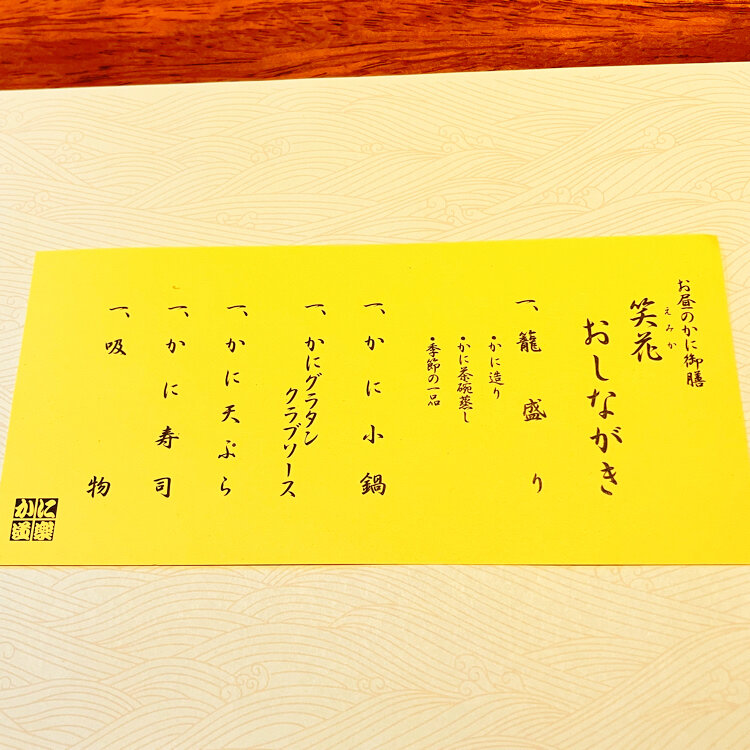 お昼のかに御膳
笑花
えみか
おしながき
一、籠盛り
・かに造り
・かに茶碗蒸し
・季節の一品
一、かに小鍋
一、かにグラタン
クラブソース
一、かに天ぷら
一、かに寿司
一、吸物
かに道楽